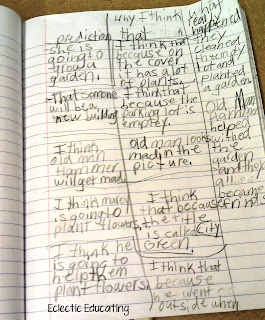 prediction
-she is
going to
grow a
garden.
-That someone
will be a
new building
I think
old man
Hammer
will get mad.
I think marcy
is going to
plant flowers.
I think he
is going to
help them
plant flowers.
Why I think
that
I think that
because on
the cover
it has alot
of plants.
I think that
because the
parking lot is
empty.
old man looks
mad in the
picture.
I think
that because
the title
is called City
Green.
I think that
because
he went
outside when
What
really
happened
they
cleaned
the empty
lot and
planted
a garden.
old Man
Hammer
helped
with
the
garden
and they
all
became
friends
Eclectic Educating